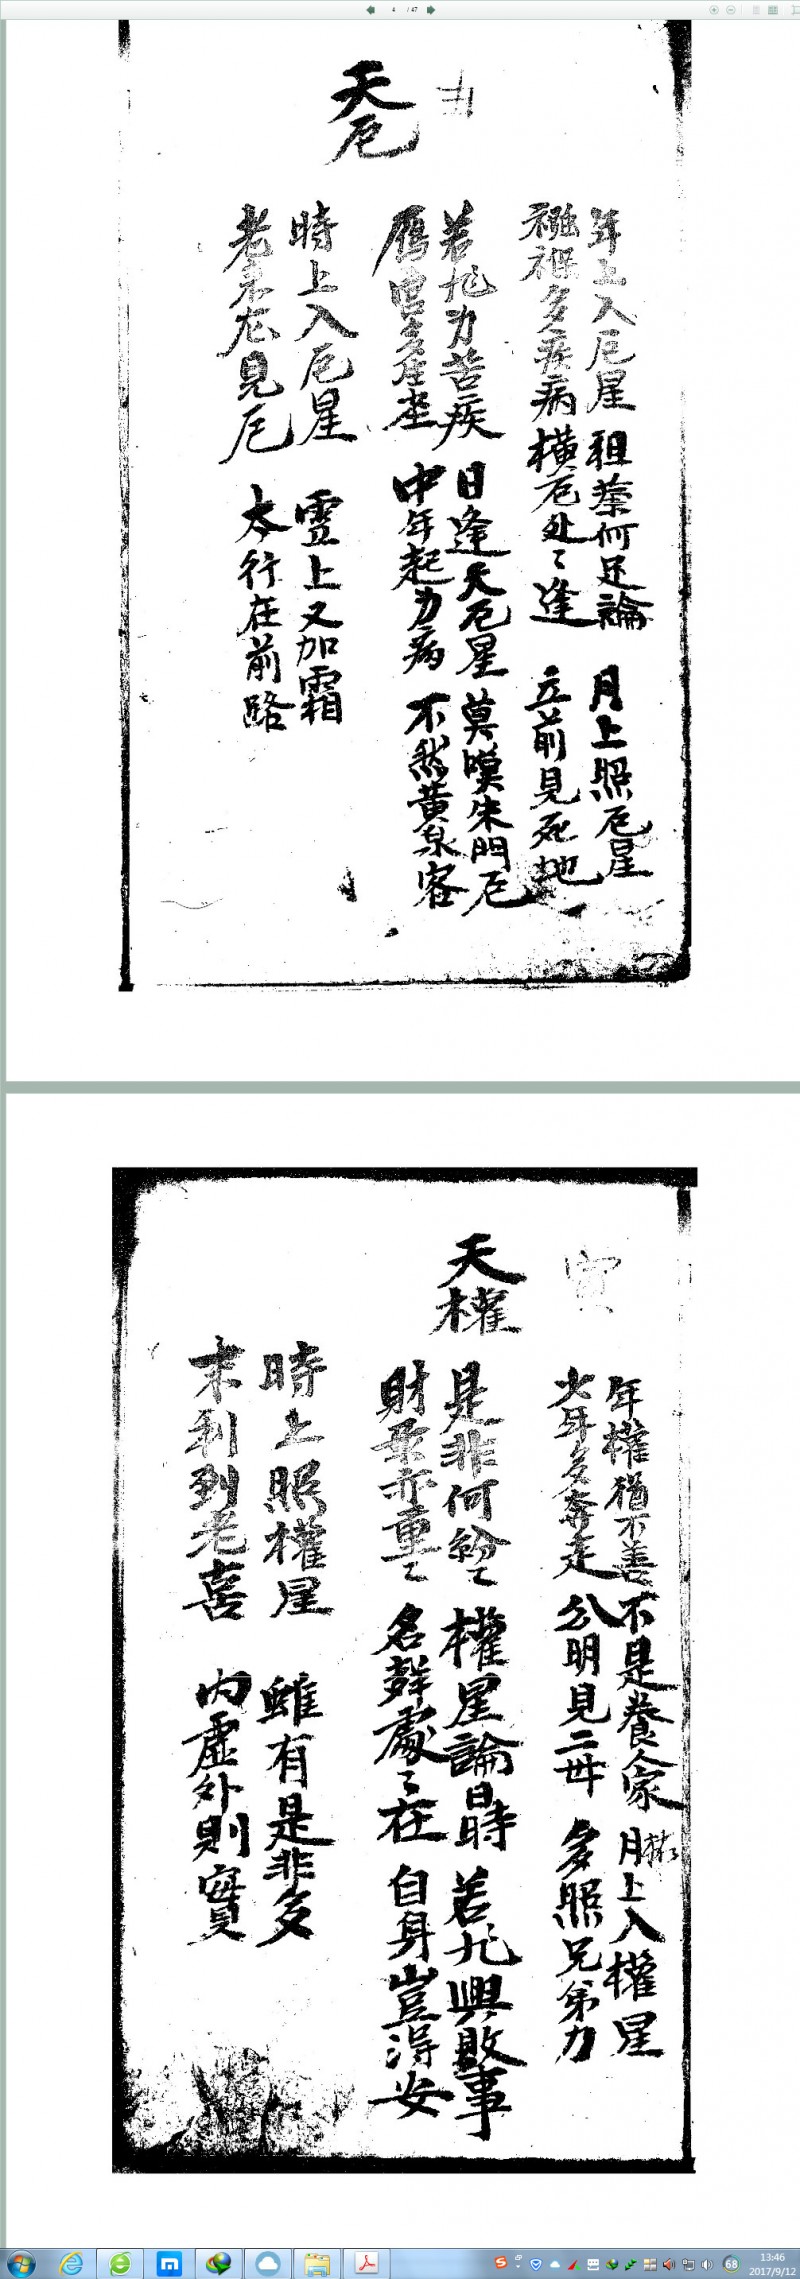 4 / 47
丑
天厄
年上入厄星 祖業何足論 月上照厄星
襁褓多疾病 橫厄处〻逢 立前見死地
若非身苦疾 日逢天厄星 莫嘆朱門厄
雁宮多座 中年起身病 不然黃泉客
時上入厄星 雪上又加霜
老來尤見厄 太行在前路
寅
天權
年權猶不善 不是養人家 月上入權星
少年多奔走 分明見二毋 多照兄弟力
是非何紛〻 權星論日時 若非興敗事
財帛亦重〻 名聲處〻在 自身豈得安
時上照權星 雖有是非多
末利到老喜 內虛外則實
68
13:46
2017/9/12